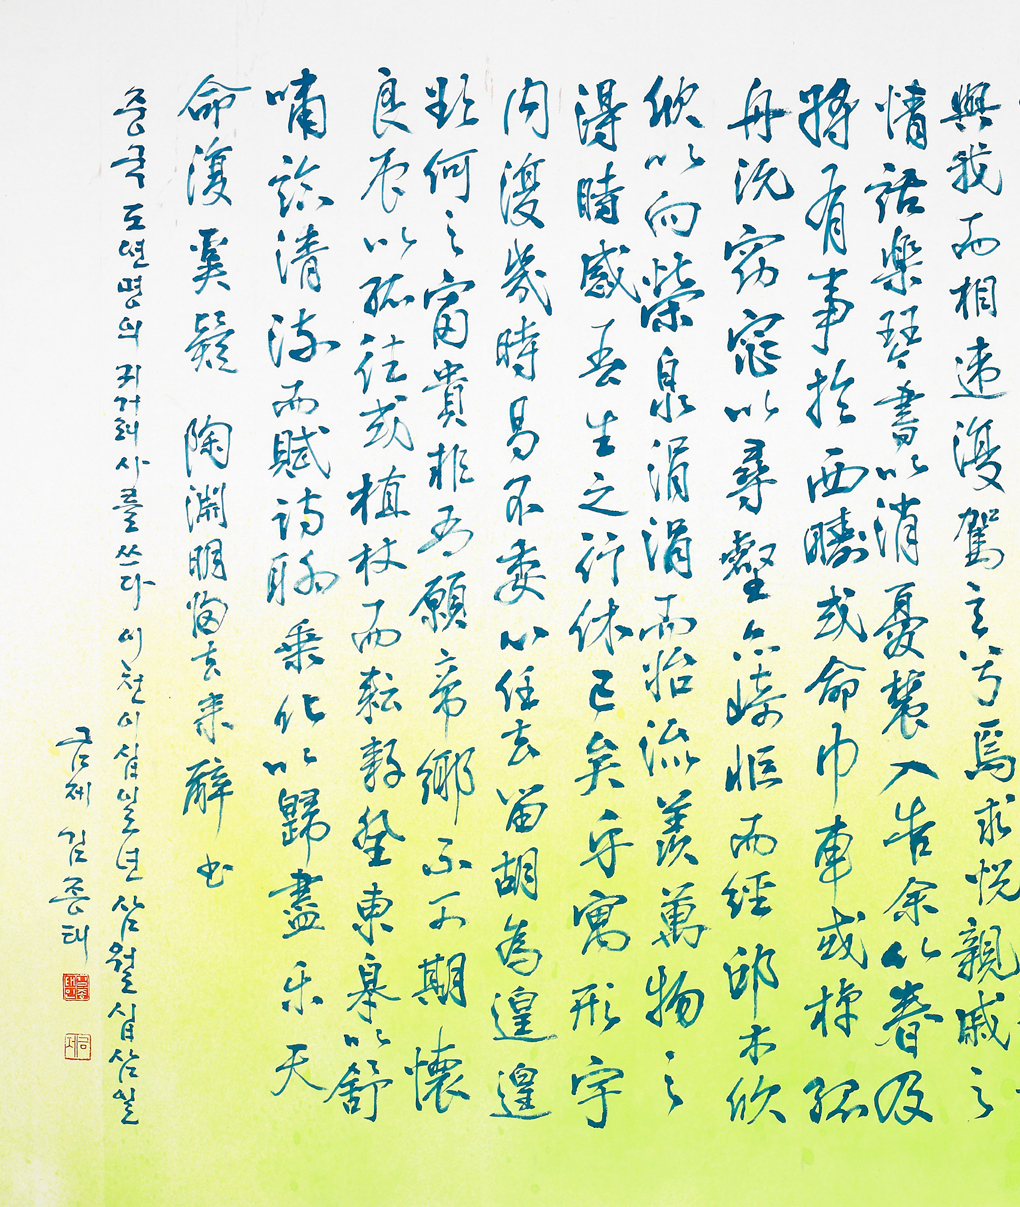 與我而相違復駕言兮焉求悅親戚之
情話樂琴書以消憂農人告余以春及
將有事於西疇或命巾車或棹孤
舟既窈窕以尋壑亦崎嶇而經邱木欣
欣以向榮泉涓涓而始流羨萬物之
得時感吾生之行休已矣乎寓形宇
內復幾時曷不委心任去留胡為遑遑
欲何之富貴非吾願帝鄉不可期懷
良辰以孤往或植杖而耘耔登東皋以舒
嘯臨清流而賦詩聊乘化以歸盡乐天
命復奚疑 陶淵明歸去来辭 书
중국 도연명의 귀거래사를 쓰다 이천이십일년 삼월 십삼일
금제 김종태